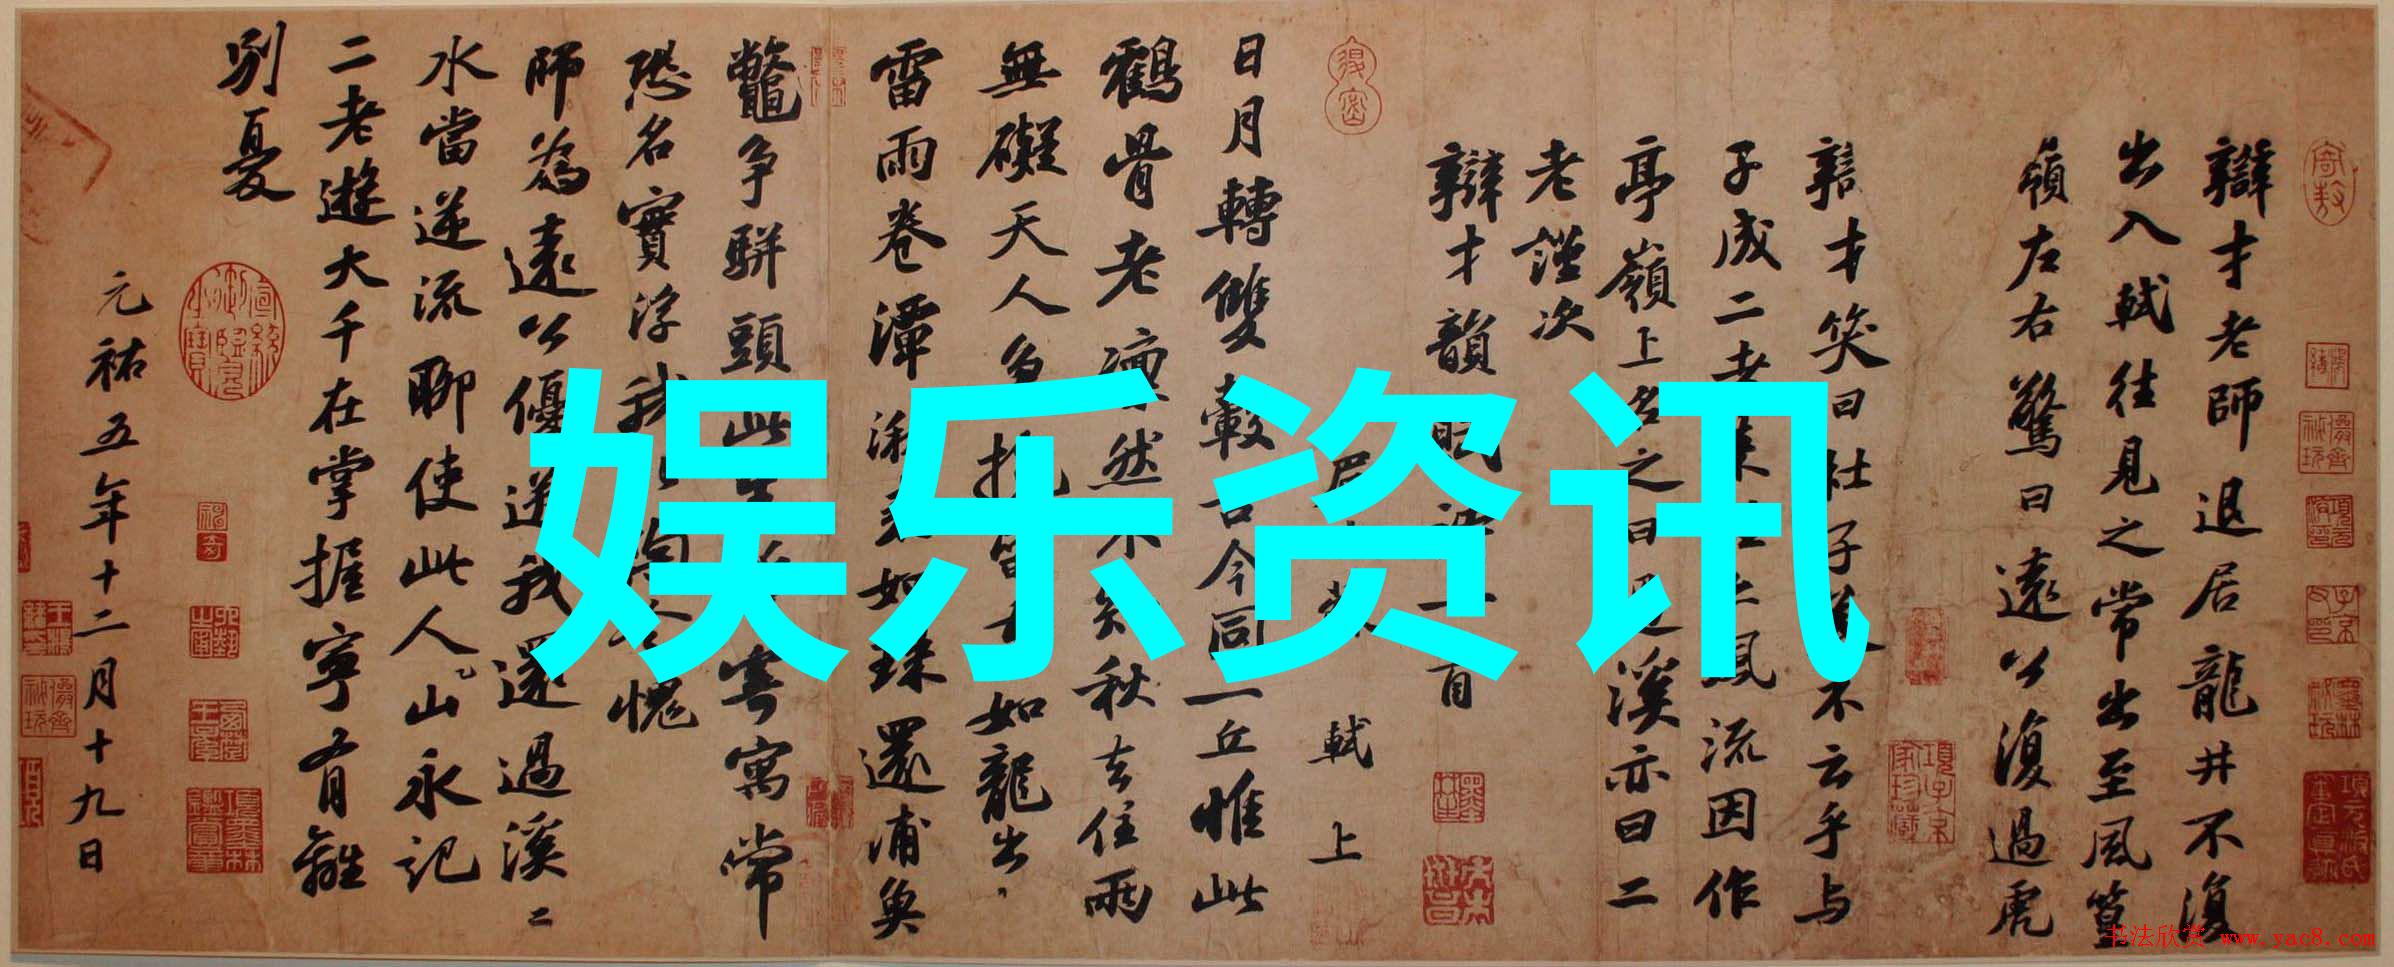 辯才老師退居龍井不復
出入軾往見之常出至風篁
嶺左右驚曰遠公復過虎
辯才笑曰杜子美不云乎與
子成二老來往亦風流因作
亭嶺上名之曰過溪亦曰二
老謹次
辯才韻賦詩一首
眉山蘇軾上
日月轉雙轂古今同一丘惟此
鶴骨老凜然不知秋去住兩
無礙天人爭挽留去如龍出
雷雨卷潭湫來如珠還浦魚
鱉爭駢頭此生暫寄寓常
恐名實浮我比陶令愧
師為遠公優送我還過溪
水當逆流聊使此人山永記
二老遊大千在掌握寧有離
別憂
元祐五年十二月十九日
娱乐资讯
书法欣赏 www.yac8.com